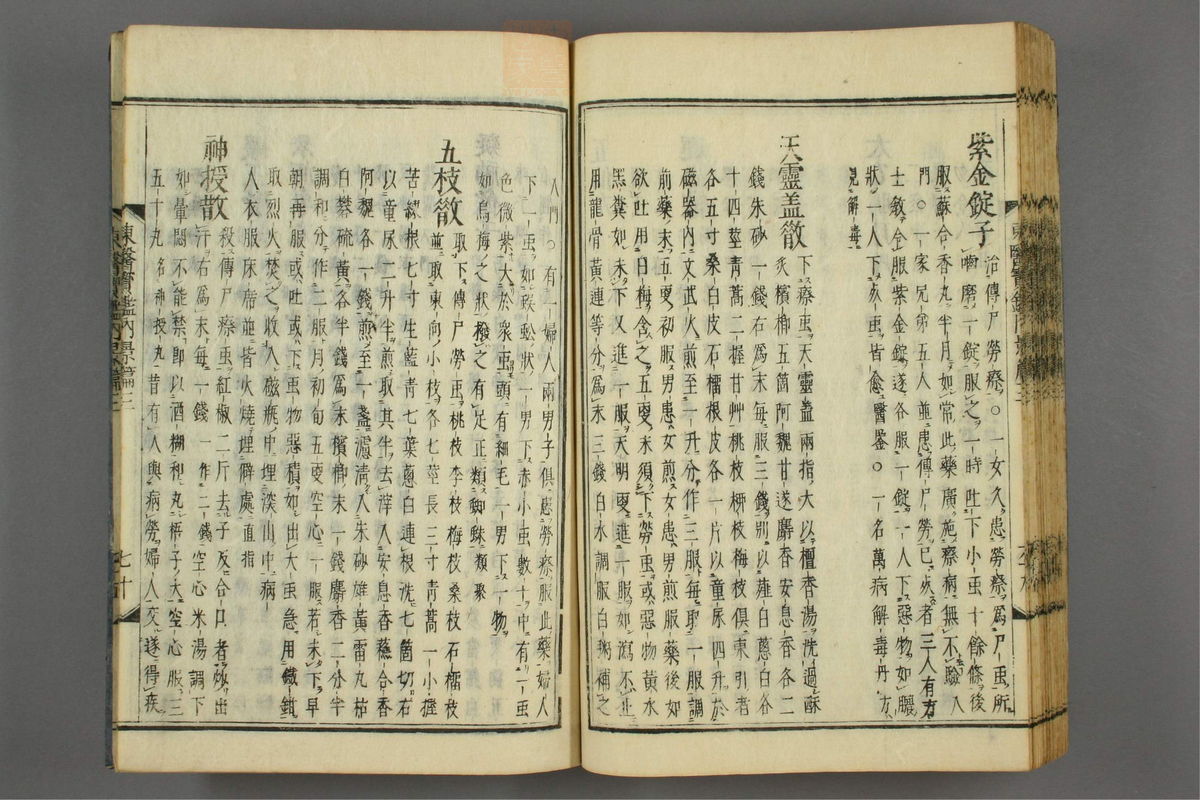 紫金錠子 治傳尸勞瘵○一女久患勞瘵爲尸虫所
嚙磨一錠服之一時吐下小虫十餘條後
服蘇合香丸半月如常此藥廣施瘵病無不驗入
門○一家兄弟五人並患傳尸勞已死者三人有方
士敎令服紫金錠遂各服一錠一人下惡物如膿
狀一人下死虫皆愈醫鑒○一名萬病解毒丹方
見解毒
天靈盖散 下瘵虫天靈盖兩指大以檀香湯洗過酥
炙檳榔五箇阿魏甘遂麝香安息香各二
錢朱砂一錢右爲末每服三錢別以薤白蔥白各
十四莖靑蒿二握甘艸桃枝柳枝梅枝俱東引者
各五寸桑白皮石榴根皮各一片以童尿四升於
磁器內文武火煎至一升分作三服每取一服調
前藥末五更初服男患女煎女患男煎服藥後如
欲吐用白梅含之五更末須下勞虫或惡物黃水
黑糞如未下又進一服天明更進一服如瀉不止
用龍骨黃連等分爲末三錢白水調服白粥補之
入門○有一婦人兩男子俱患勞瘵服此藥婦人
下一虫如蜈蚣狀一男下赤小虫數十中有一虫
色微紫大於衆虫頭有細毛一男下一物
如烏梅之狀撥之有足正類蜘蛛類聚
五枝散 取下傳尸勞虫桃枝李枝梅枝桑枝石榴枝
並取東向小枝各七莖長三寸靑蒿一小握
苦練根七寸生藍靑七葉蔥白連根洗七箇切右
以童尿二升半煎取其半去滓入安息香蘇合香
阿魏各一錢煎至一盞濾淸入朱砂雄黃雷丸枯
白礬硫黃各半錢爲末檳榔末一錢麝香二分半
調和分作二服月初旬五更空心一服若未下早
朝再服或吐或下虫物惡積如出大虫急用鐵鉗
取烈火焚之收入磁甁中埋深山中病
人衣服床席並皆火燒埋僻處直指
神授散 殺傳尸瘵虫紅椒二斤去子及合口者炒出
汗右爲末每一錢一作二錢空心米湯調下
如暈悶不能禁卽以酒糊和丸梧子大空心服三
五十丸名神授丸昔有人與病勞婦人交遂得疾
東醫寶鑑內景篇三
七十